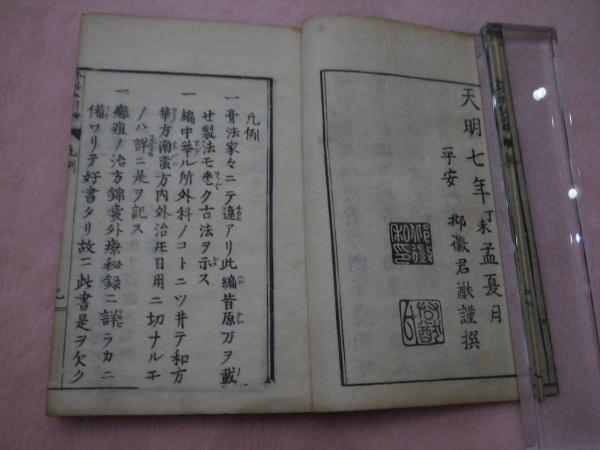 天明七年丁未孟夏月
平安 柳徽君猷謹撰
凡例
一 膏法家々ニテ違アリ此編皆原方ヲ載
せ製法モ悉ク古法ヲ示ス
一 編中挙ル所外科ノコトニツ井テ和方
華方南蛮方内外治圧日用ニ切ナルモ
ノハ詳ニ是ヲ記ス
一 癰疽ノ治方錦嚢外療秘録ニ詳ラカニ
備ワリテ好書タリ故ニ此書是ヲ欠ク